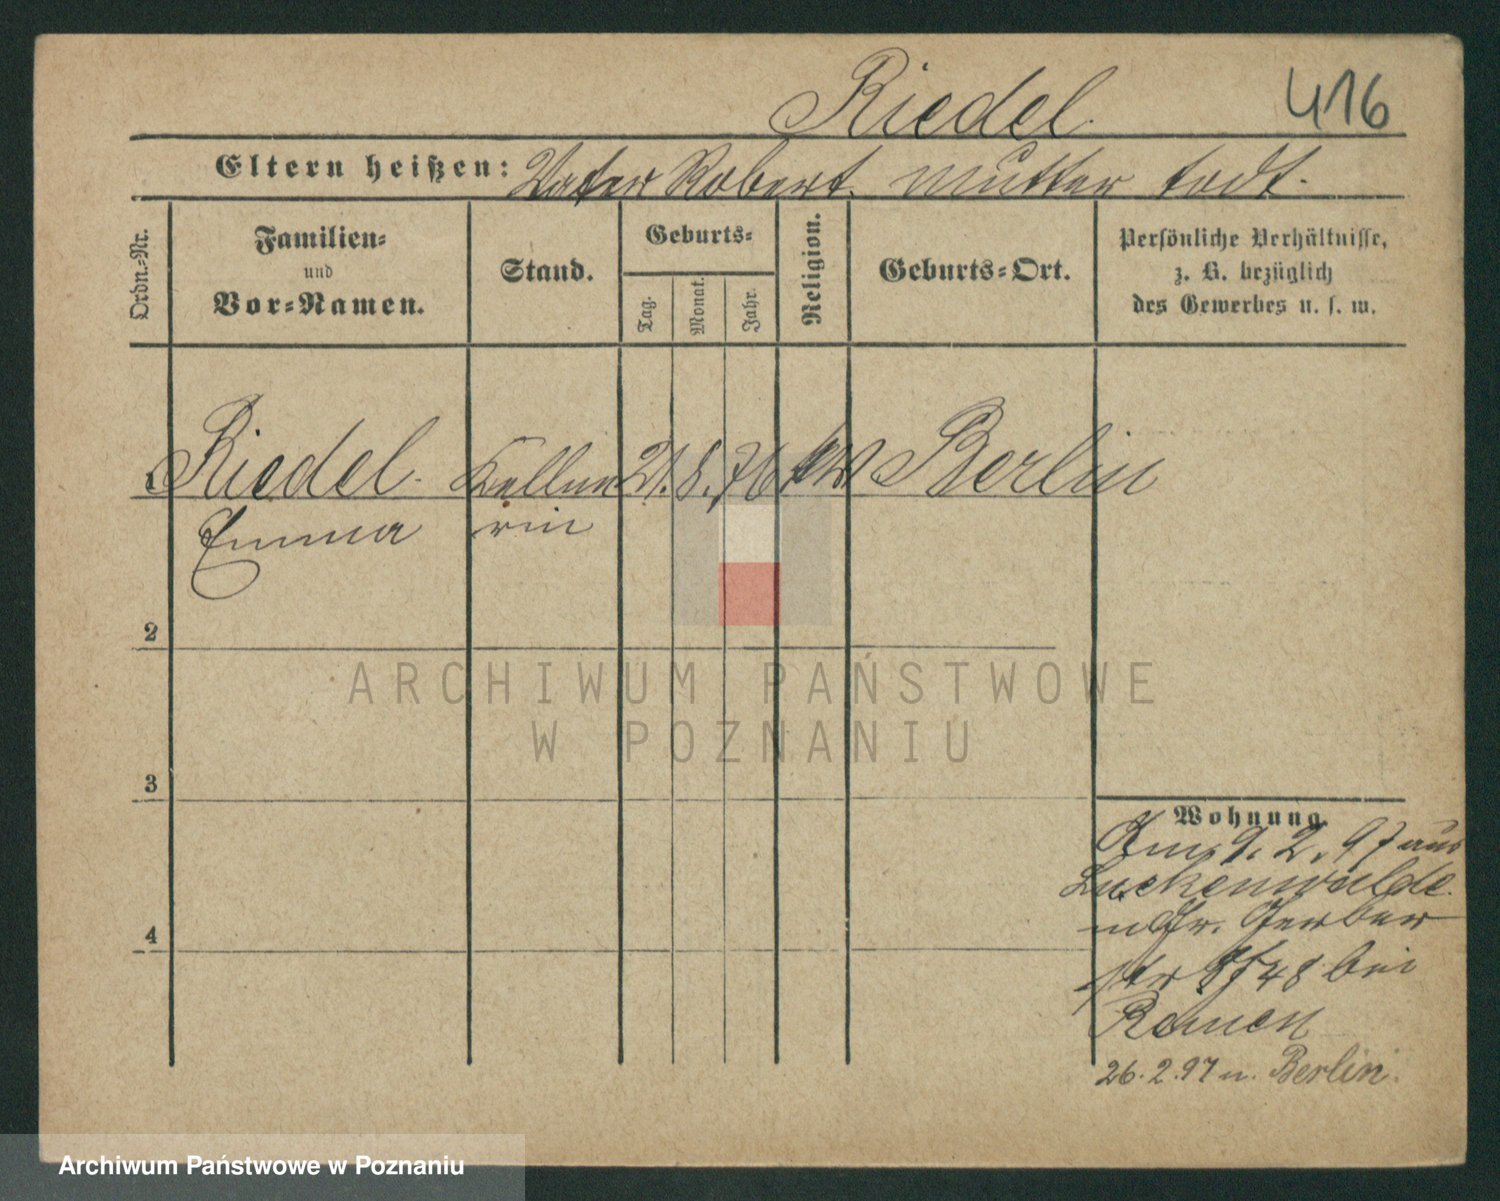 Riedel.
416
Eltern heißen: Vater Robert. Mutter todt.
Ordn.-Nr.
Familien-
und
Vor-Namen.
Stand.
Geburts-
Tag.
Monat.
Jahr.
Religion.
Geburts-Ort.
Persönliche Verhältnisse,
z. B. bezüglich
des Gewerbes u. s. w.
1 Riedel. Kellne 21. 8. 76 Berlin
Emma rin
2
3
4
Wohnung.
9. 2. 97 aus
Luckenwalde.
Gerber
str 48 bei
26. 2. 97 n. Berlin.
ARCHIWUM PAŃSTWOWE
W POZNANIU
Archiwum Państwowe w Poznaniu